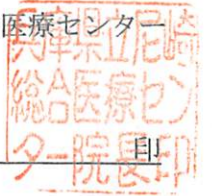 医療センター
兵庫県立尼崎
総合医療セン
ター院長印
印